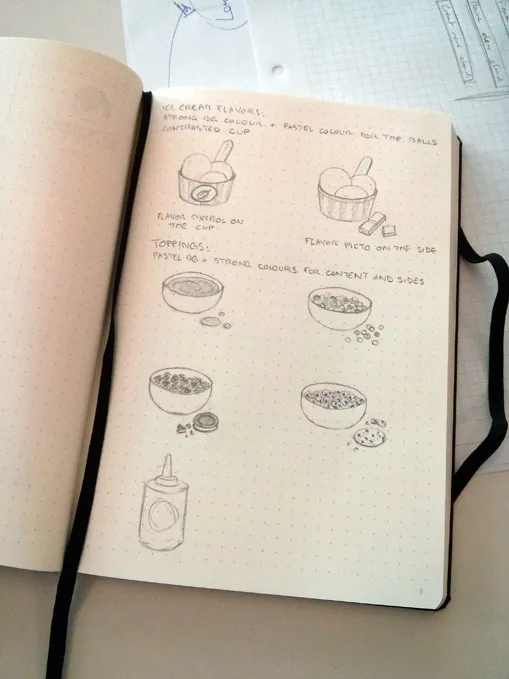 ICE CREAM FLAVORS:
STRONG BG COLOUR + PASTEL COLOUR FOR THE BALLS
CONTRASTED CUP
FLAVOR SYMBOL ON
THE CUP
FLAVOR PICTO ON THE SIDE
TOPPINGS:
PASTEL BG + STRONG COLOURS FOR CONTENT AND SIDES